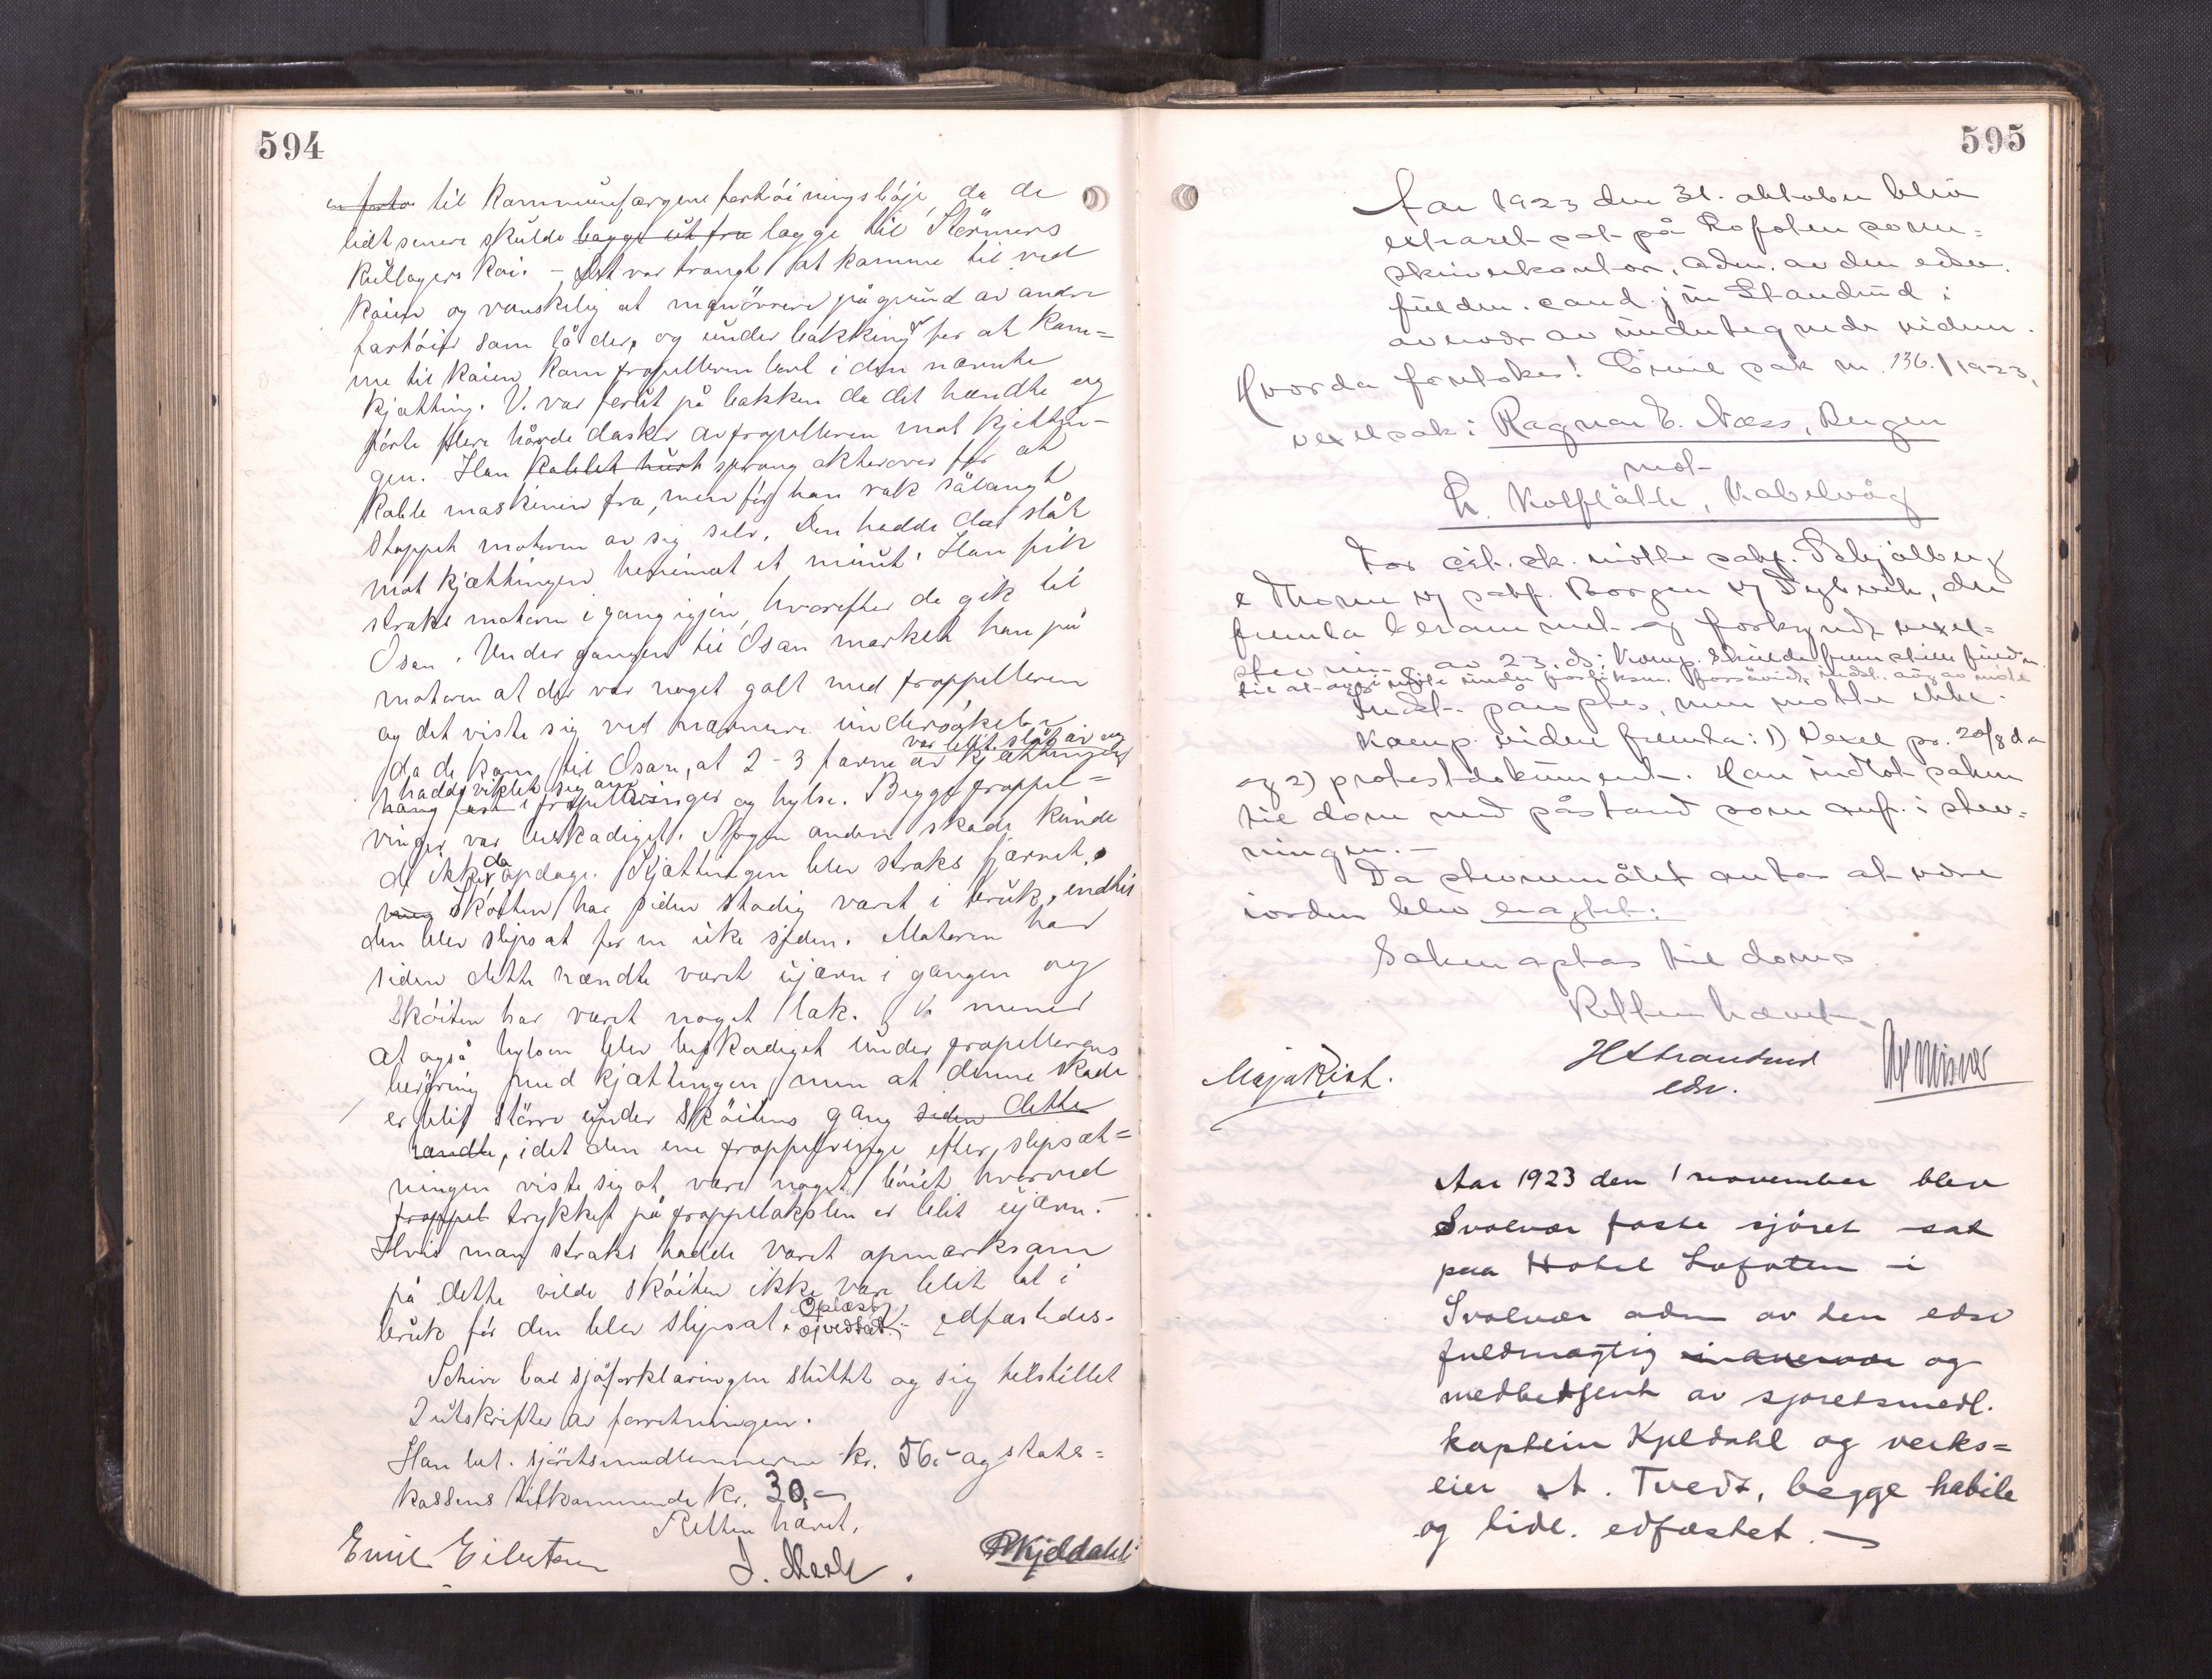 594
en forto til Kommunefærgens fortöiningsböje, da de
lidt senere skulde lægge ut fra lægge til Störmers
Kullagers Kai. – Det var trangt at komme til ved
Kaien og vanskelig at manövrere på grund av andre
fartöier som lå der, og under bakking for at kom=
me til Kaien kom propelleren bort i den nævnte
kjætting. V. var forut på bakken da det hændte og
hörte flere hårde dasker av propelleren mot kjettin-
gen. Han koblet hurt sprang akterover for at
koble maskinen fra, men för han rak sålangt
stoppet motoren av sig selv. Den hadde da slåt
mot kjættingen henimot et minut. Han fik
straks motoren i gang igjen, hvorefter de gik til
Osan. Under gangen til Osan merket han på
motoren at der var noget galt med proppelleren
og det viste sig ved nærmere undersökelse
da de kom til Osan, at 2-3 favne av kjættingen
var blit slåt av og
hadde viklet sig om
hang fast i propelvinger og hylse. Begge proppel=
vinger var beskadiget. Nogen anden skade kunde
de ikke da opdage. Kjættingen blev straks fjernet.
Sköiten har siden stadig været i bruk, indtil
den blev slipsat for en uke siden. Motoren har
siden dette hændte været ujævn i gangen og
Sköiten har været noget lak. V. mener
at også hylsen blev beskadiget under propellerens
beröring med kjættingen, men at denne skade
er blit större under sköitens gang siden dette
hændte, idet den ene proppelvinge efter slipsæt=
ningen viste sig at være noget böiet hvorved
proppel trykket på proppelakslen er blit ujævn. –
Hvis man straks hadde været opmerksom
på dette vilde sköiten ikke være blit tat i
bruk för den blev slipsat. Oplæst,
vedtat. – Edfæstedes.
bad sjöforklaringen sluttet og sig tilstillet
2 utskrifter av forretningen.
Han bet. sjöretsmedlemmerne kr. 56.- og stats=
kassens tilkommende kr. 30,-
Retten hævet.
Emil
Kjeldahl
595
Aar 1923 den 31. oktober blev
extraret sat på Lofoten soren=
skriverkontor, adm. av den edsv.
fuldm. cand. jur Strandrud i
nærvær av undertegnede vidner.
Hvorda foretokes! Civil sak nr. 136./1923,
vexelsak: Ragnar E. Næss, Bergen
mot
Kabelvåg
For cit. sk. mötte sakf. Schjölberg
e Thome og sakf. Borgen og Dybwik, der
fremla berammet og forkyndt vexel=
stevning av 23. ds; Komp. skulde fremstille fuldm.
Indst. påroptes, men mötte ikke.
Komp. videre fremla: 1) Vexel pr. 20/8 d.a
og 2) protestdokument. Han indlot saken
til dom med påstand som anf. i stev=
ningen. –
Da stevnemålet antas at være
iorden blev eragtet:
Saken optas til doms
Retten hævet.
Maja Rist.
HStrandrud
edsv.
Aar 1923 den 1 november blev
Svolvær faste sjöret sat
paa Hotel Lofoten i
Svolvær adm av den edsv
fuldmægtig i nærvær og
medbetjent av sjøretsmedl.
kaptein Kjeldahl og verks=
eier A. Tvedt, begge habile
og tidl. edfæstet. –